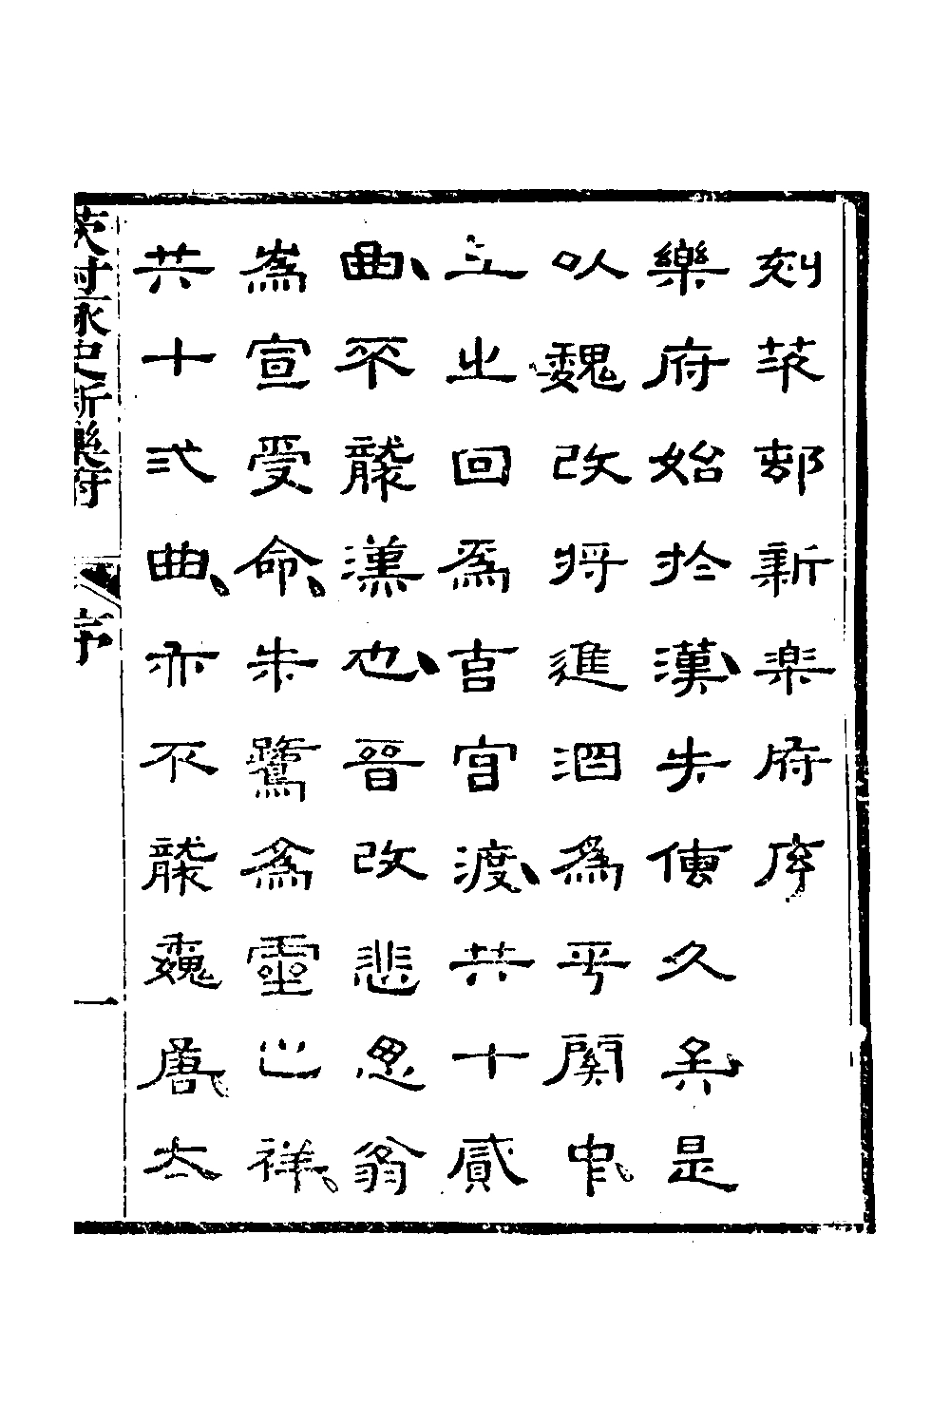 刻茨邨新楽府序
樂府始於漢、失傳久矣是
以魏改將進酒為平關中、
上之回為克官渡、共十貳
曲、不襲漢也、晉改悲思翁
為宣受命、朱鷺為靈之祥、
共十弍曲、亦不襲魏唐、太
茨村詠史新樂府 序 一